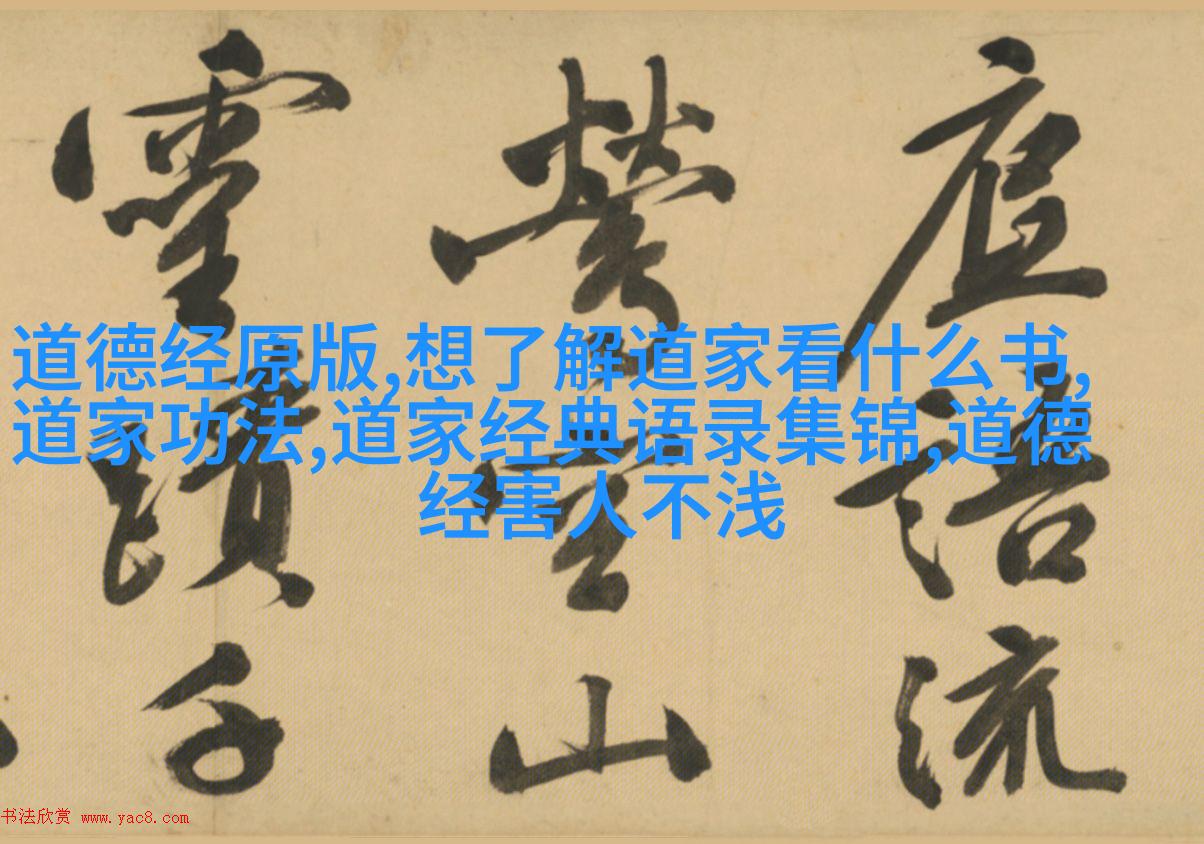 語流
山
靈蹟千
道德经原版,想了解道家看什么书,
道家功法,道家经典语录集锦,道德
经害人不浅
书法欣赏 www.yac8.com